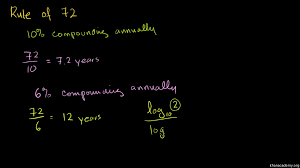 Rule of 72
10% compounding annually
72/10 = 7.2 years
6% compounding annually
72/6 = 12 years
log₁₀ 2
log
khanacademy.org